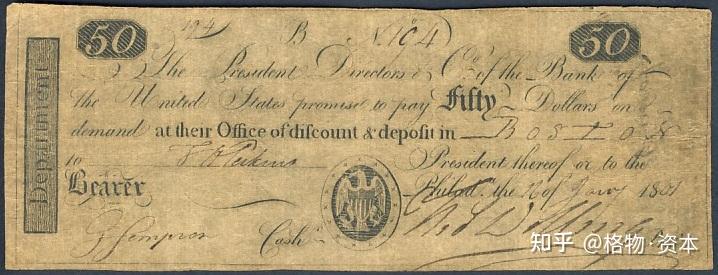 50 194 B No. 194 50
The President Directors & Co. of the Bank of
the United States promise to pay Fifty Dollars on
demand at their Office of discount & deposit in Boston
to Perkins President thereof or to the
Bearer Philada. the of Jany 1801
Cashr.
Department
知乎 @格物·资本